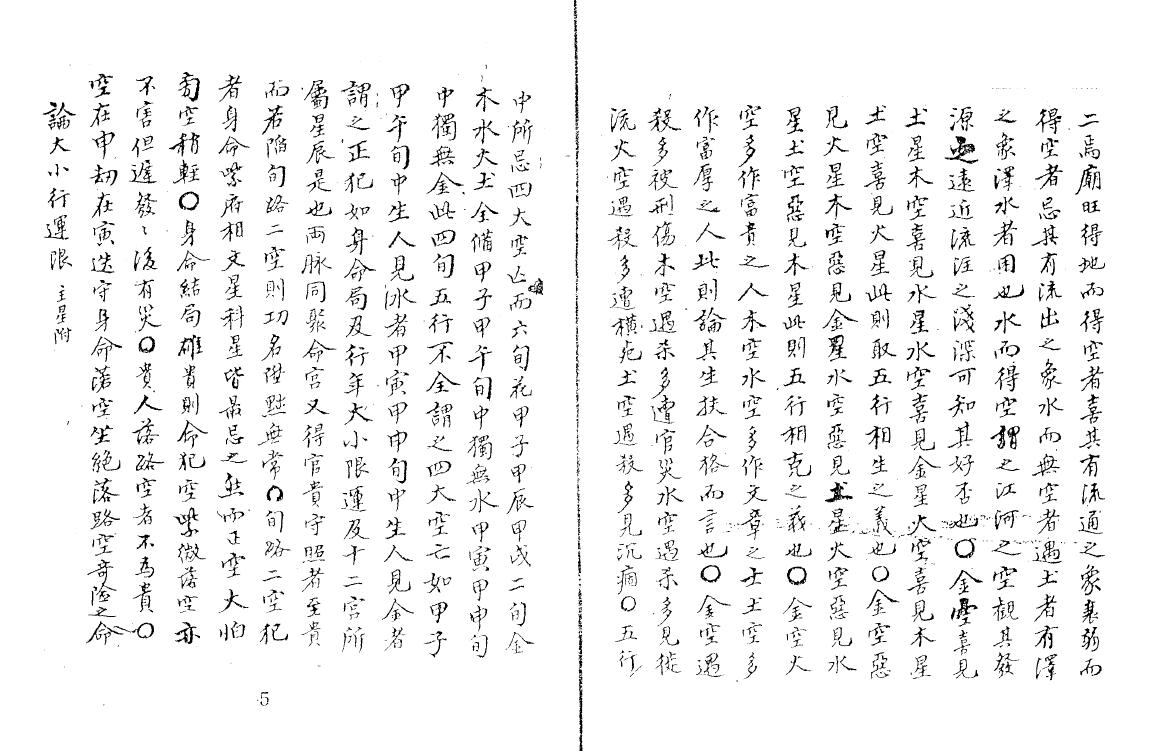 二焉廟旺得地而得空者喜其有流通之象衰弱而
得空者忌其有流出之象水而無空者遇土者有澤
之象澤水者用也水而得空謂之江河之空觀其發
源遠近流注之淺深可知其好否也〇金空喜見
土星木空喜見水星水空喜見金星火空喜見木星
土空喜見火星此則取五行相生之義也〇金空惡
見火星木空惡見金星水空惡見土星火空惡見水
星土空惡見木星此則五行相克之義也〇金空火
空多作富貴之人木空水空多作文章之士土空多
作富厚之人此則論其生扶合格而言也〇金空遇
殺多被刑傷木空遇杀多遭官災水空遇杀多見徙
流火空遇殺多遭橫死土空遇殺多見沉痼〇五行
中所忌四大空亡而六旬花甲子甲辰甲戌二旬金
木水火土全備甲子甲午旬中獨無水甲寅甲申旬
中獨無金此四旬五行不全謂之四大空亡如甲子
甲午旬中生人見水者甲寅甲申旬中生人見金者
謂之正犯如身命局及行年大小限運及十二宮所
屬星辰是也两脉同聚命宮又得官貴守照者至貴
而若陷旬路二空則功名陞黜無常〇旬路二空犯
者身命紫府相文星科星皆最忌之然而正空大怕
旁空稍輕〇身命結局雄貴則命犯空紫微落空亦
不害但遲發〻後有災〇貴人落路空者不為貴〇
空在申劫在寅迭守身命落空坐絕落路空奇險之命
論大小行運限 主星附
5